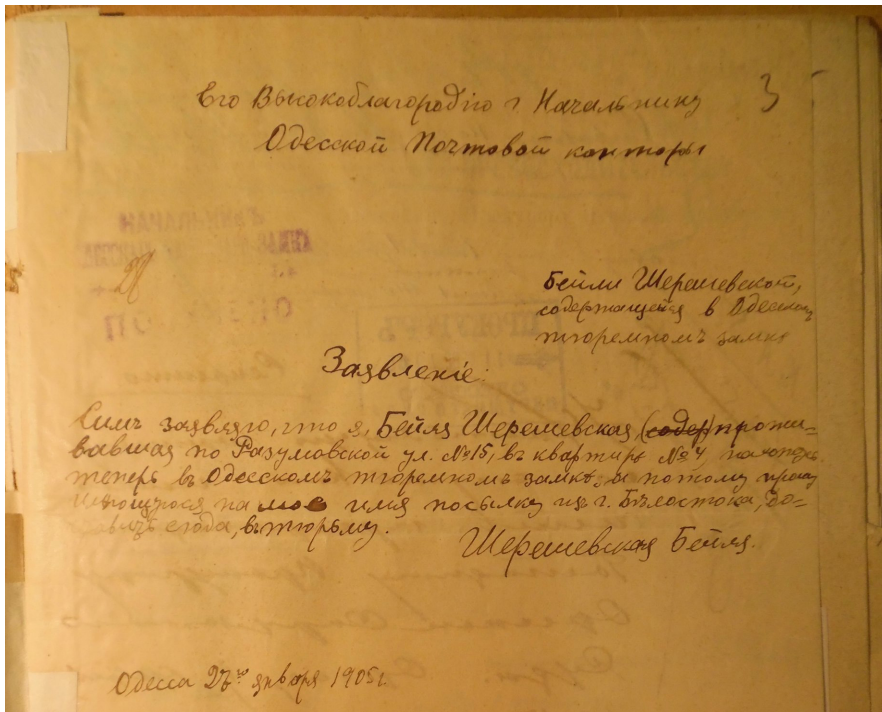 3
Его Высокоблагородію г. Начальнику
Одесской Почтовой конторы
Бейли Шерешевской,
содержащейся в Одесскомъ
тюремномъ замкѣ
Заявленіе:
Симъ заявляю, что я, Бейля Шерешевская, (содер) прожи-
вавшая по Разумовской ул. №15, въ квартирѣ №4, нахожусь
теперь въ Одесскомъ тюремномъ замкѣ, а потому прошу
имѣющуюся на мое имя посылку из г. Бѣлостока, до-
сюда, въ тюрьму.
Шерешевская Бейля.
Одесса 27го января 1905 г.